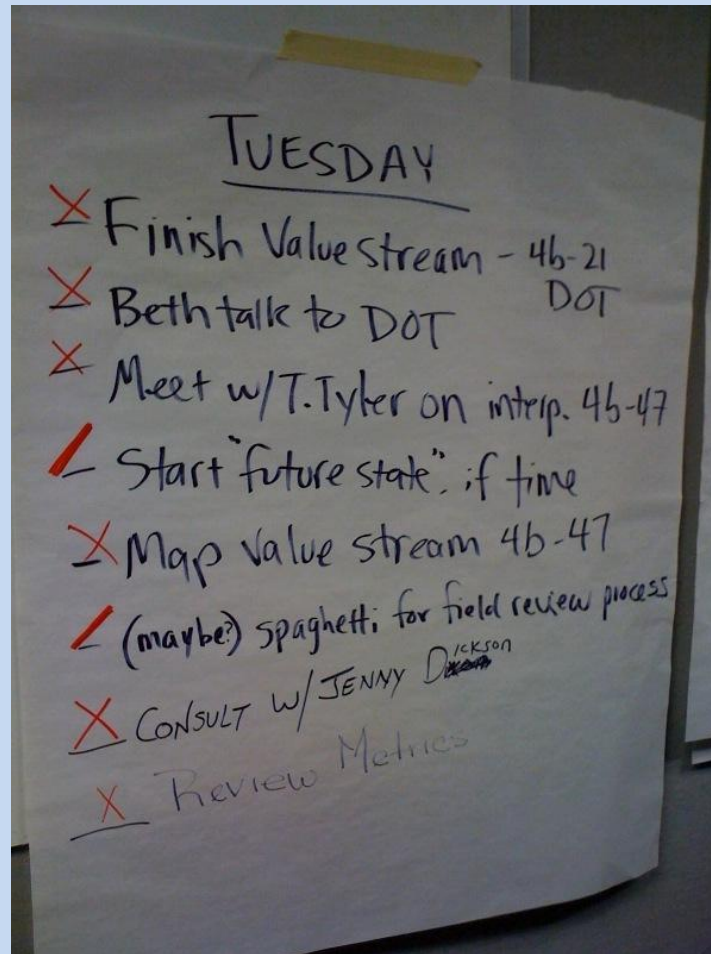 TUESDAY
X Finish Value stream - 4b-21
DOT
X Beth talk to DOT
X Meet w/T.Tyler on interp. 4b-47
/ Start "future state". if time
X Map Value stream 4b-47
/ (maybe?) spaghetti for field review process
X CONSULT W/ JENNY Dickson
X Review Metrics